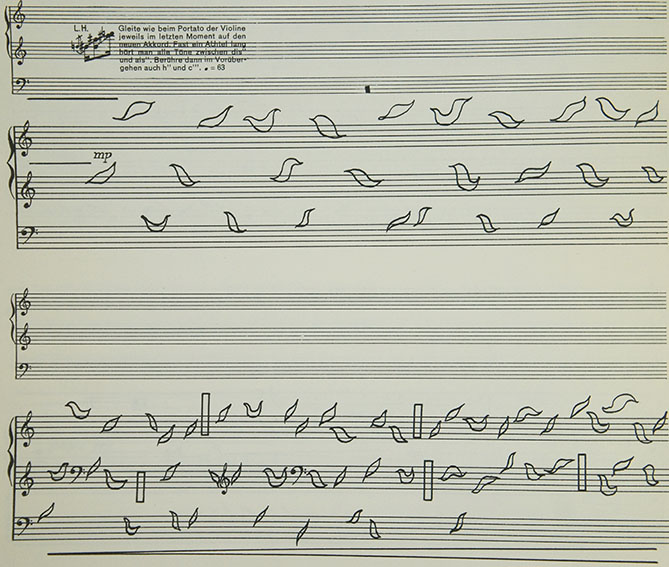 L.H.
Gleite wie beim Portato der Violine
jeweils im letzten Moment auf den
neuen Akkord. Fast ein Achtel lang
hört man alle Töne zwischen dis''
und als''. Berühre dann im Vorüber-
gehen auch h'' und c'''. = 63
mp